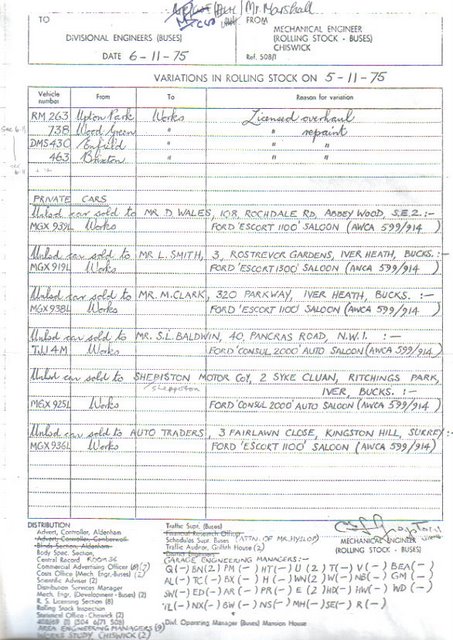 Mr. Marshall
TO
DIVISIONAL ENGINEERS (BUSES)
DATE 6-11-75
FROM
MECHANICAL ENGINEER
(ROLLING STOCK - BUSES)
CHISWICK
Ref. 508/1
VARIATIONS IN ROLLING STOCK ON 5-11-75
Vehicle number From To Reason for variation
RM 263 Upton Park Works Licensed overhaul
738 Wood Green " " repaint
DMS 430 Enfield " " "
463 Brixton " " "
PRIVATE CARS
Unlsd car sold to MR D. WALES, 108, ROCHDALE RD, ABBEY WOOD, S.E.2. :-
MGX 939L Works FORD 'ESCORT 1100' SALOON (AWCA 599/914)
Unlsd car sold to MR L. SMITH, 3, ROSTREVOR GARDENS, IVER HEATH, BUCKS. :-
MGX 919L Works FORD 'ESCORT 1300' SALOON (AWCA 599/914)
Unlsd car sold to MR. M. CLARK, 320 PARKWAY, IVER HEATH, BUCKS. :-
MGX 938L Works FORD 'ESCORT 1100' SALOON (AWCA 599/914)
Unlsd car sold to MR. S.L. BALDWIN, 40, PANCRAS ROAD, N.W.1. :-
Works FORD 'CONSUL 2000' AUTO SALOON (AWCA 599/914)
Unlsd car sold to SHEPISTON MOTOR COY, 2 SYKE CLUAN, RITCHINGS PARK,
Shepperton IVER, BUCKS. :-
MGX 925L Works FORD 'CONSUL 2000' AUTO SALOON (AWCA 599/914)
Unlsd car sold to AUTO TRADERS, 3 FAIRLAWN CLOSE, KINGSTON HILL, SURREY :-
MGX 936L Works FORD 'ESCORT 1100' SALOON (AWCA 599/914)
DISTRIBUTION
Advert, Controller, Aldenham
Advert, Controller, Camberwell
Blinds Section, Aldenham
Body Spec. Section,
Central Record ROOM 36
Commercial Advertising Officer
Costs Office (Mech. Engr-Buses)
Scientific Adviser (2)
Distribution Services Manager
Mech. Engr. (Development - Buses) (2)
R. S. Licensing Section (8)
Rolling Stock Inspection
Statement Office - Chiswick (2)
AREA ENGINEERING MANAGERS (9)
WORKS STUDY CHISWICK (2)
Traffic Supt. (Buses)
Financial Research Officer
Schedules Supt. Buses (ATTN. OF MR. HYSLOP)
Traffic Auditor, Griffith House (2)
District Engineers
GARAGE ENGINEERING MANAGERS :-
Div. Operating Manager (Buses) Mansion House
MECHANICAL ENGINEER
(ROLLING STOCK - BUSES)